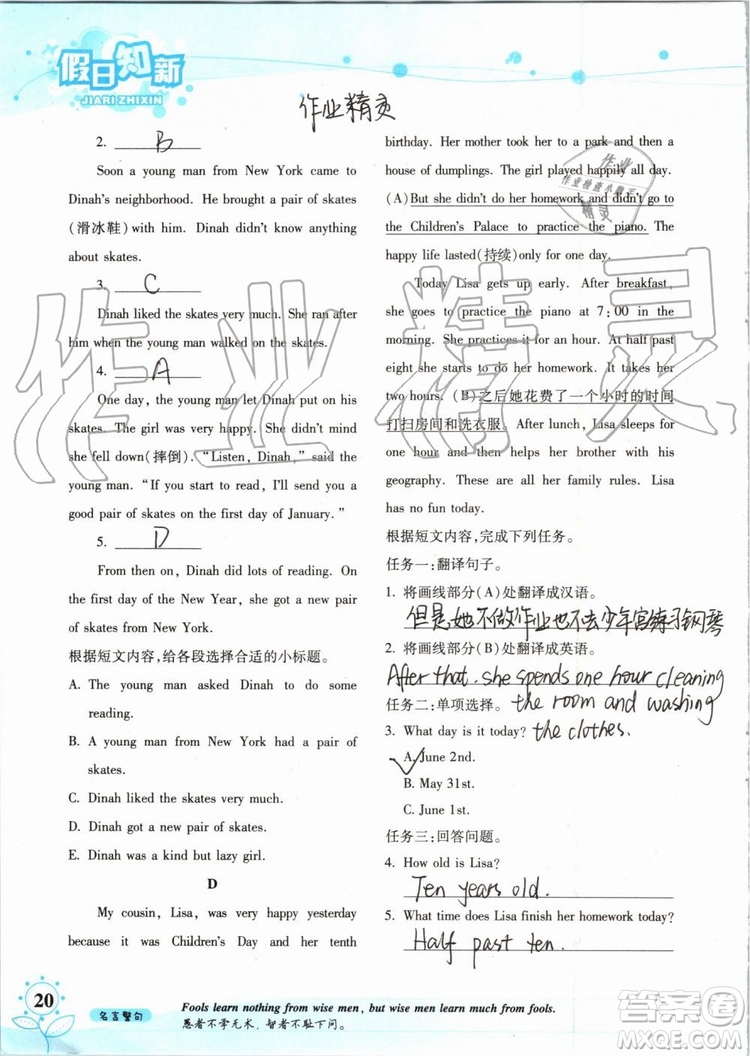 假日知新
JIARI ZHIXIN
作业精灵
2. B
Soon a young man from New York came to
Dinah's neighborhood. He brought a pair of skates
(滑冰鞋) with him. Dinah didn't know anything
about skates.
3. C
Dinah liked the skates very much. She ran after
him when the young man walked on the skates.
4. A
One day, the young man let Dinah put on his
skates. The girl was very happy. She didn't mind
she fell down(摔倒). "Listen, Dinah," said the
young man. "If you start to read, I'll send you a
good pair of skates on the first day of January."
5. D
From then on, Dinah did lots of reading. On
the first day of the New Year, she got a new pair
of skates from New York.
根据短文内容,给各段选择合适的小标题。
A. The young man asked Dinah to do some
reading.
B. A young man from New York had a pair of
skates.
C. Dinah liked the skates very much.
D. Dinah got a new pair of skates.
E. Dinah was a kind but lazy girl.
D
My cousin, Lisa, was very happy yesterday
because it was Children's Day and her tenth
birthday. Her mother took her to a park and then to
a house of dumplings. The girl played happily all day.
(A)But she didn't do her homework and didn't go to
the Children's Palace to practice the piano. The
happy life lasted(持续)only for one day.
Today Lisa gets up early. After breakfast,
she goes to practice the piano at 7:00 in the
morning. She practices it for an hour. At half past
eight she starts to do her homework. It takes her
two hours. (B)之后她花费了一个小时的时间
打扫房间和洗衣服. After lunch, Lisa sleeps for
one hour and then helps her brother with his
geography. These are all family rules. Lisa
has no fun today.
根据短文内容,完成下列任务。
任务一:翻译句子。
1. 将画线部分(A)处翻译成汉语。
但是她不做作业也不去少年宫练习钢琴
2. 将画线部分(B)处翻译成英语。
After that, she spends one hour cleaning
任务二:单项选择。 the room and washing
3. What day is it today? the clothes.
A. June 2nd.
B. May 31st.
C. June 1st.
任务三:回答问题。
4. How old is Lisa?
Ten years old.
5. What time does Lisa finish her homework today?
Half past ten.
20
名言警句
Fools learn nothing from wise men, but wise men learn much from fools.
愚者不学无术,智者不耻下问。
作业精灵
答案圈
MXQE.COM